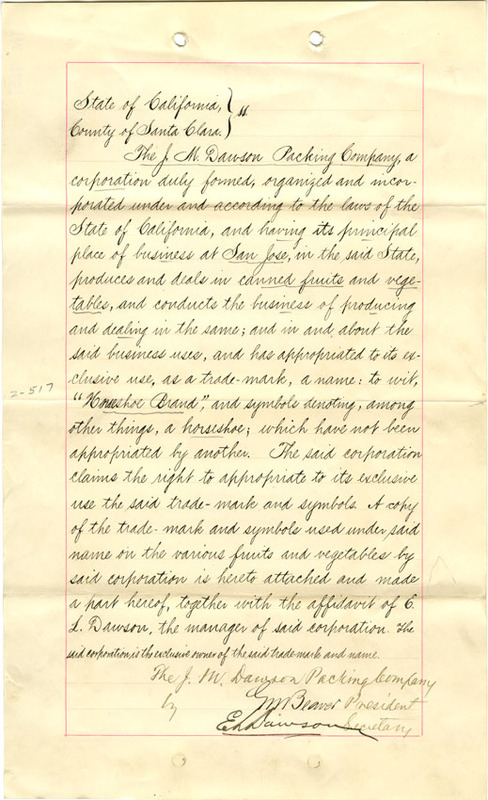 State of California, } ss.
County of Santa Clara. }
The J. M. Dawson Packing Company, a
corporation duly formed, organized and incor-
porated under and according to the laws of the
State of California, and having its principal
place of business at San Jose, in the said State,
produces and deals in canned fruits and vege-
tables, and conducts the business of producing
and dealing in the same; and in and about the
said business uses, and has appropriated to its ex-
clusive use, as a trade-mark, a name: to wit,
2-517
"Horseshoe Brand", and symbols denoting, among
other things, a horseshoe; which have not been
appropriated by another. The said corporation
claims the right to appropriate to its exclusive
use the said trade-mark and symbols. A copy
of the trade-mark and symbols used under said
name on the various fruits and vegetables by
said corporation is hereto attached and made
a part hereof, together with the affidavit of E.
L. Dawson, the manager of said corporation. The
said corporation is the exclusive owner of the said trade mark and name.
The J. M. Dawson Packing Company
by Beaver President
E L Dawson Secretary